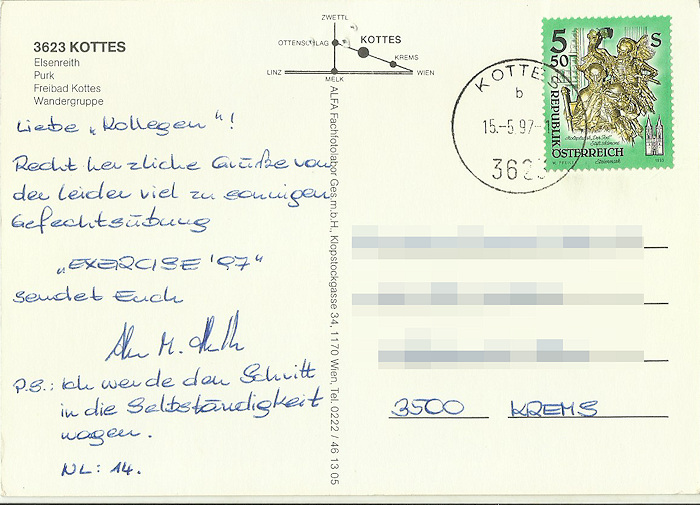 3623 KOTTES
Elsenreith
Purk
Freibad Kottes
Wandergruppe
Liebe „Kollegen"!
Recht herzliche Grüße von
der leider viel zu sonnigen
Gefechtsübung
„EXERCISE '97"
sendet Euch
P.S.: Ich werde den Schritt
in die Selbständigkeit
wagen.
NL: 14.
ZWETTL
OTTENSCHLAG
KOTTES
KREMS
LINZ
MELK
WIEN
ALFA Fachfotolabor Ges.m.b.H., Klopstockgasse 34, 1170 Wien, Tel. 0222 / 46 13 05
KOTTES
b
15.-5.97-1
3623
5
50
S
REPUBLIK
ÖSTERREICH
Steiermark
1993
3500 KREMS